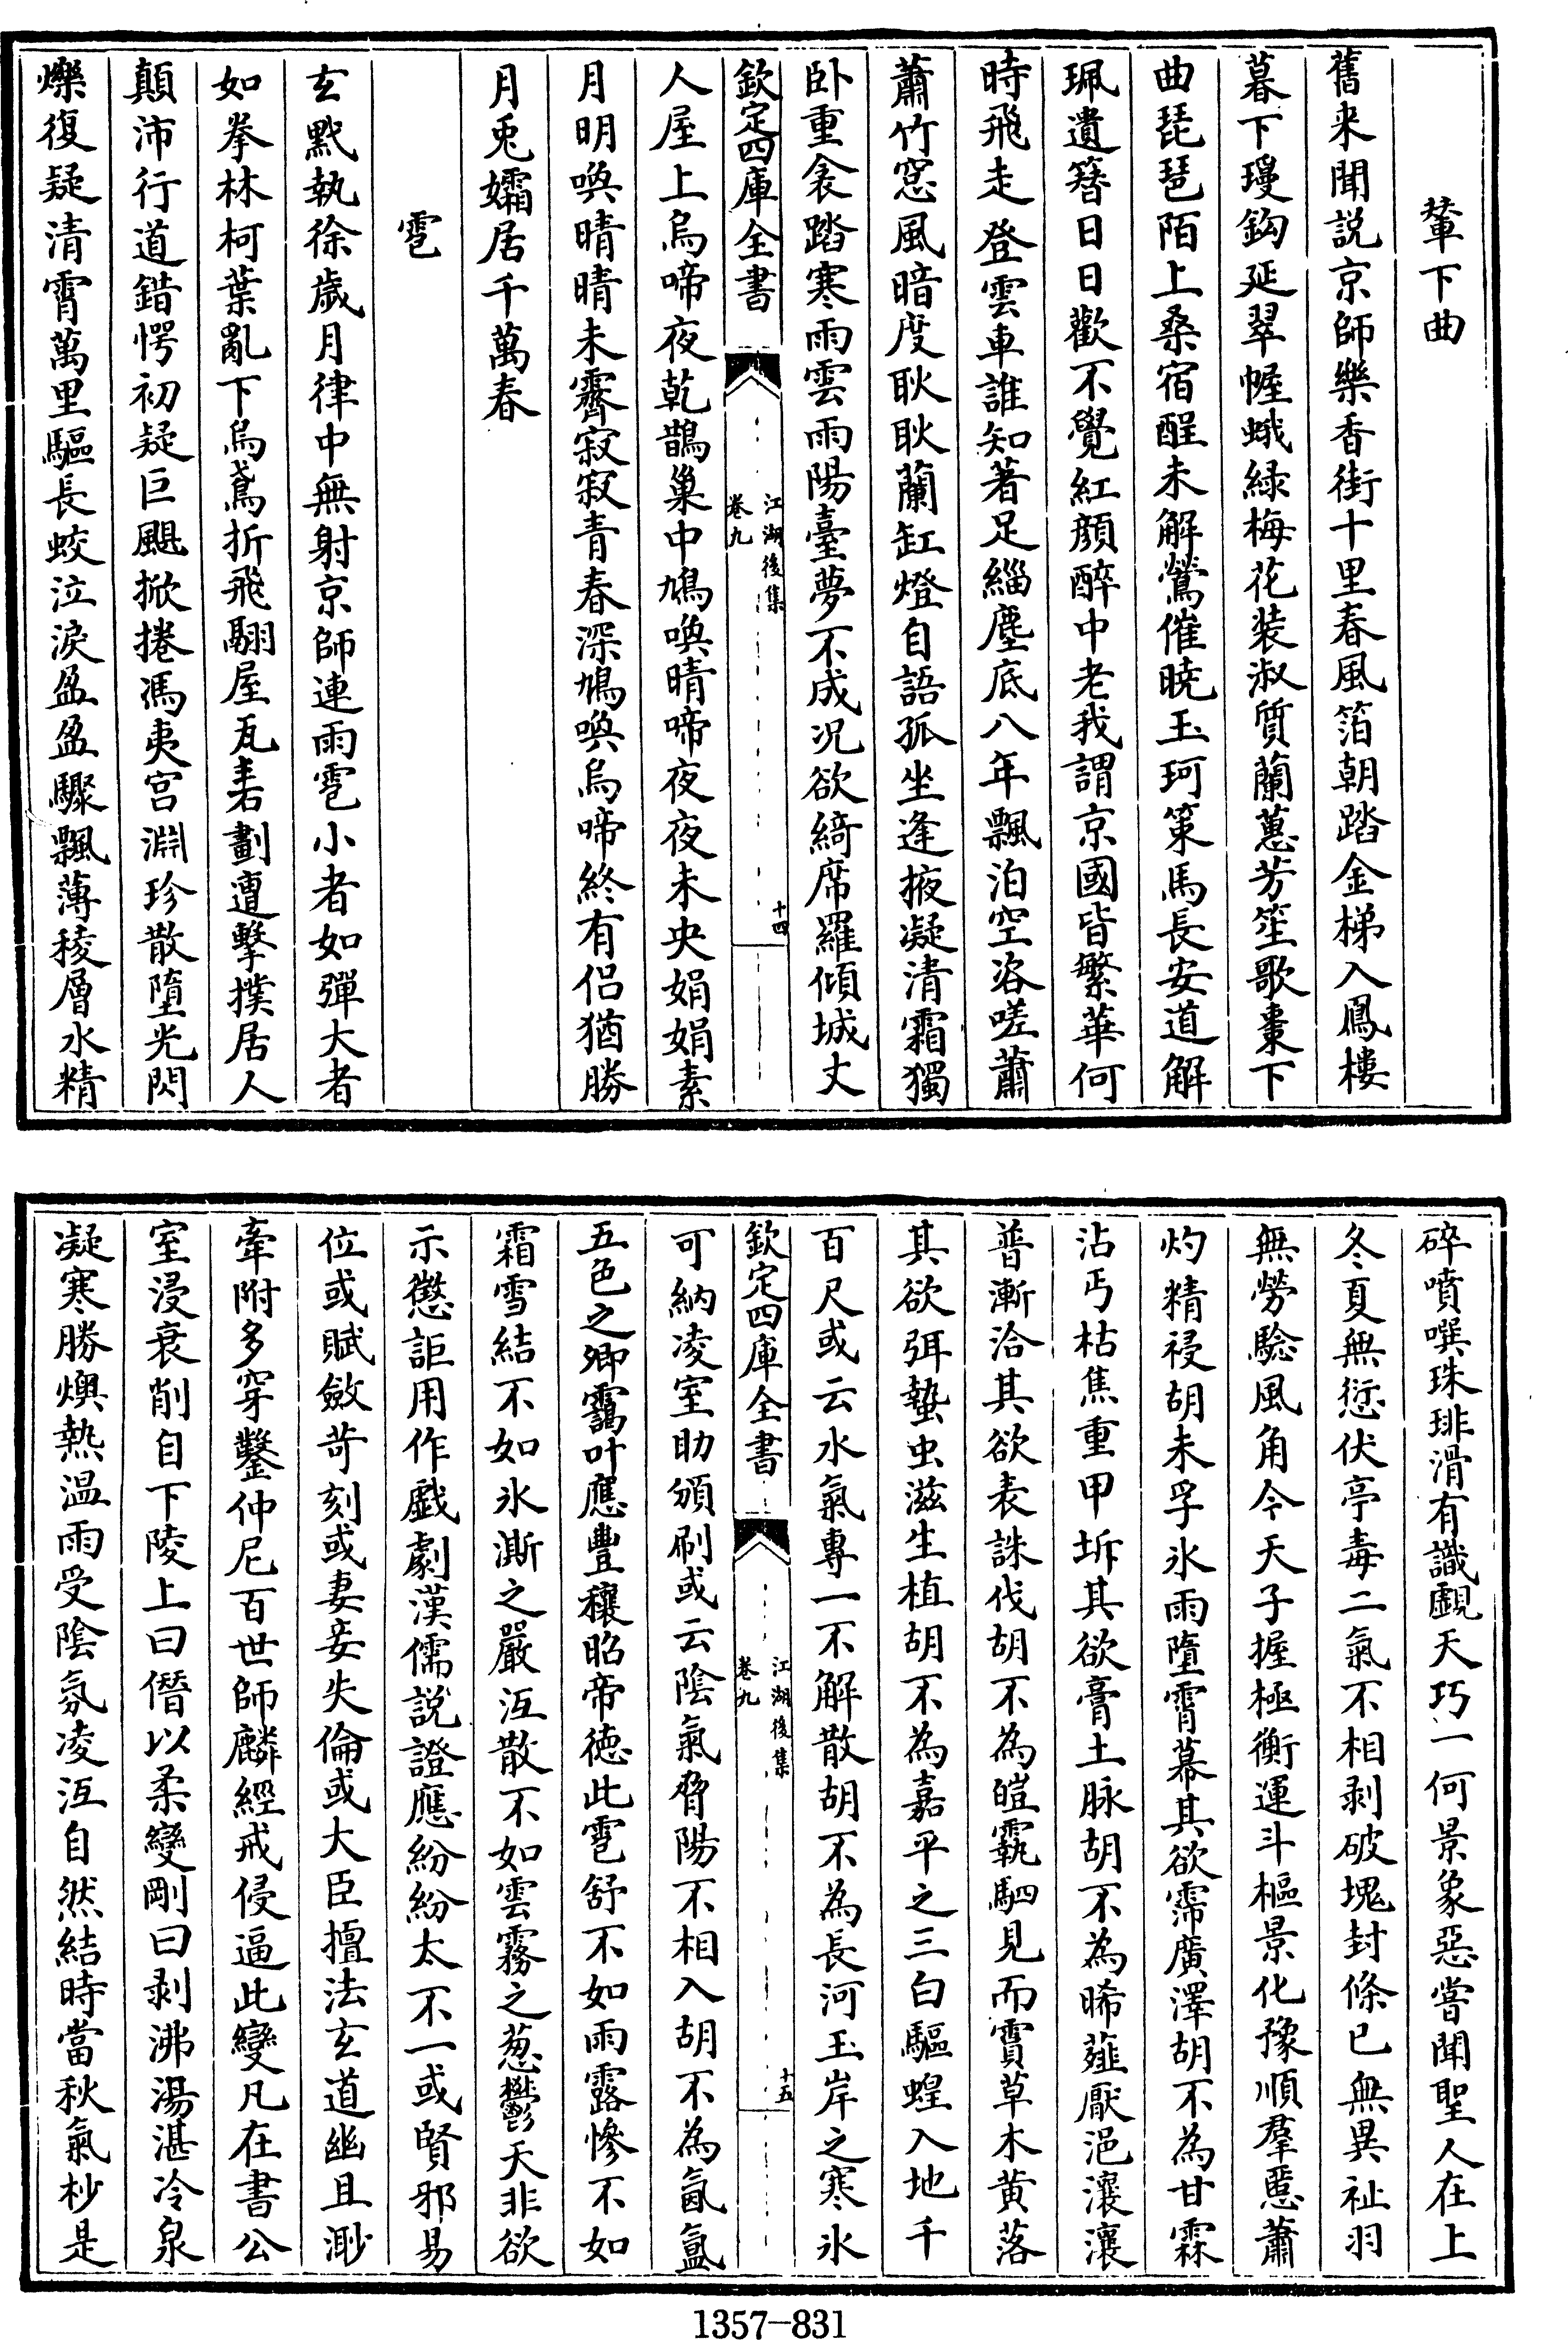 輦下曲
舊来聞説京師樂香街十里春風箔朝踏金梯入鳳樓
暮下璦鈎延翠幄蛾緑梅花装淑質蘭蕙芳笙歌棗下
曲琵琶陌上桑宿酲未解鶯催曉玉珂策馬長安道解
珮遺簪日日歡不覺紅顔醉中老我謂京國皆繁華何
時飛走登雲車誰知著足緇塵底八年飄泊空咨嗟蕭
蕭竹窓風暗度耿耿蘭缸燈自語孤坐逢掖凝清霜獨
卧重衾踏寒雨雲雨陽臺夢不成况欲綺席羅傾城丈
欽定四庫全書
江湖後集
卷九
十四
人屋上烏啼夜乾鵲巢中鳩喚晴啼夜夜未央娟娟素
月明喚晴晴未霽寂寂青春深鳩喚烏啼終有侣猶勝
月兎孀居千萬春
雹
玄黓執徐歲月律中無射京師連雨雹小者如彈大者
如拳林柯葉亂下烏鳶折飛翮屋瓦砉劃遭擊撲居人
顛沛行道錯愕初疑巨颶掀捲馮夷宫淵珍散墮光閃
爍復疑清霄萬里驅長蛟泣淚盈盈驟飄薄稜層水精
碎噴噀珠琲滑有識覷天巧一何景象惡嘗聞聖人在上
冬夏無愆伏亭毒二氣不相剥破塊封條已無異祉羽
無勞騐風角今天子握極衡運斗樞景化豫順羣慝蕭
灼精祲胡未孚氷雨墮霄幕其欲霈廣澤胡不為甘霖
沾丐枯焦重甲坼其欲膏土脉胡不為晞薤厭浥瀼瀼
普漸洽其欲表誅伐胡不為皚霿駟見而霣草木黄落
其欲弭蟄虫滋生植胡不為嘉平之三白驅蝗入地千
百尺或云水氣專一不解散胡不為長河玉岸之寒氷
欽定四庫全書
江湖後集
卷九
十五
可納凌室助頒刷或云陰氣脅陽不相入胡不為氤氲
五色之卿靄叶應豐穰昭帝德此雹舒不如雨露慘不如
霜雪結不如氷澌之嚴沍散不如雲霧之葱鬱天非欲
示懲詎用作戲劇漢儒説證應紛紛太不一或賢邪易
位或賦斂苛刻或妻妾失倫或大臣擅法玄道幽且渺
牽附多穿鑿仲尼百世師麟經戒侵逼此變凡在書公
室浸衰削自下陵上曰僭以柔變剛曰剥沸湯湛冷泉
凝寒勝燠熱温雨受陰氛凌沍自然結時當秋氣杪是
1357-831